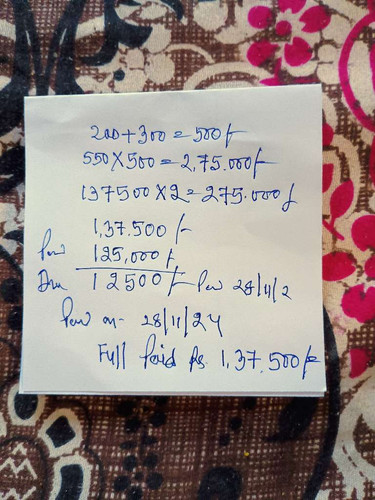 200+300=500/-
550×500=2,75.000/-
137500×2=275.000/-
1,37.500/-
125,000/-
Due 12500/- 28/11/2
on- 28/11/24
Full Paid Rs. 1,37.500/=